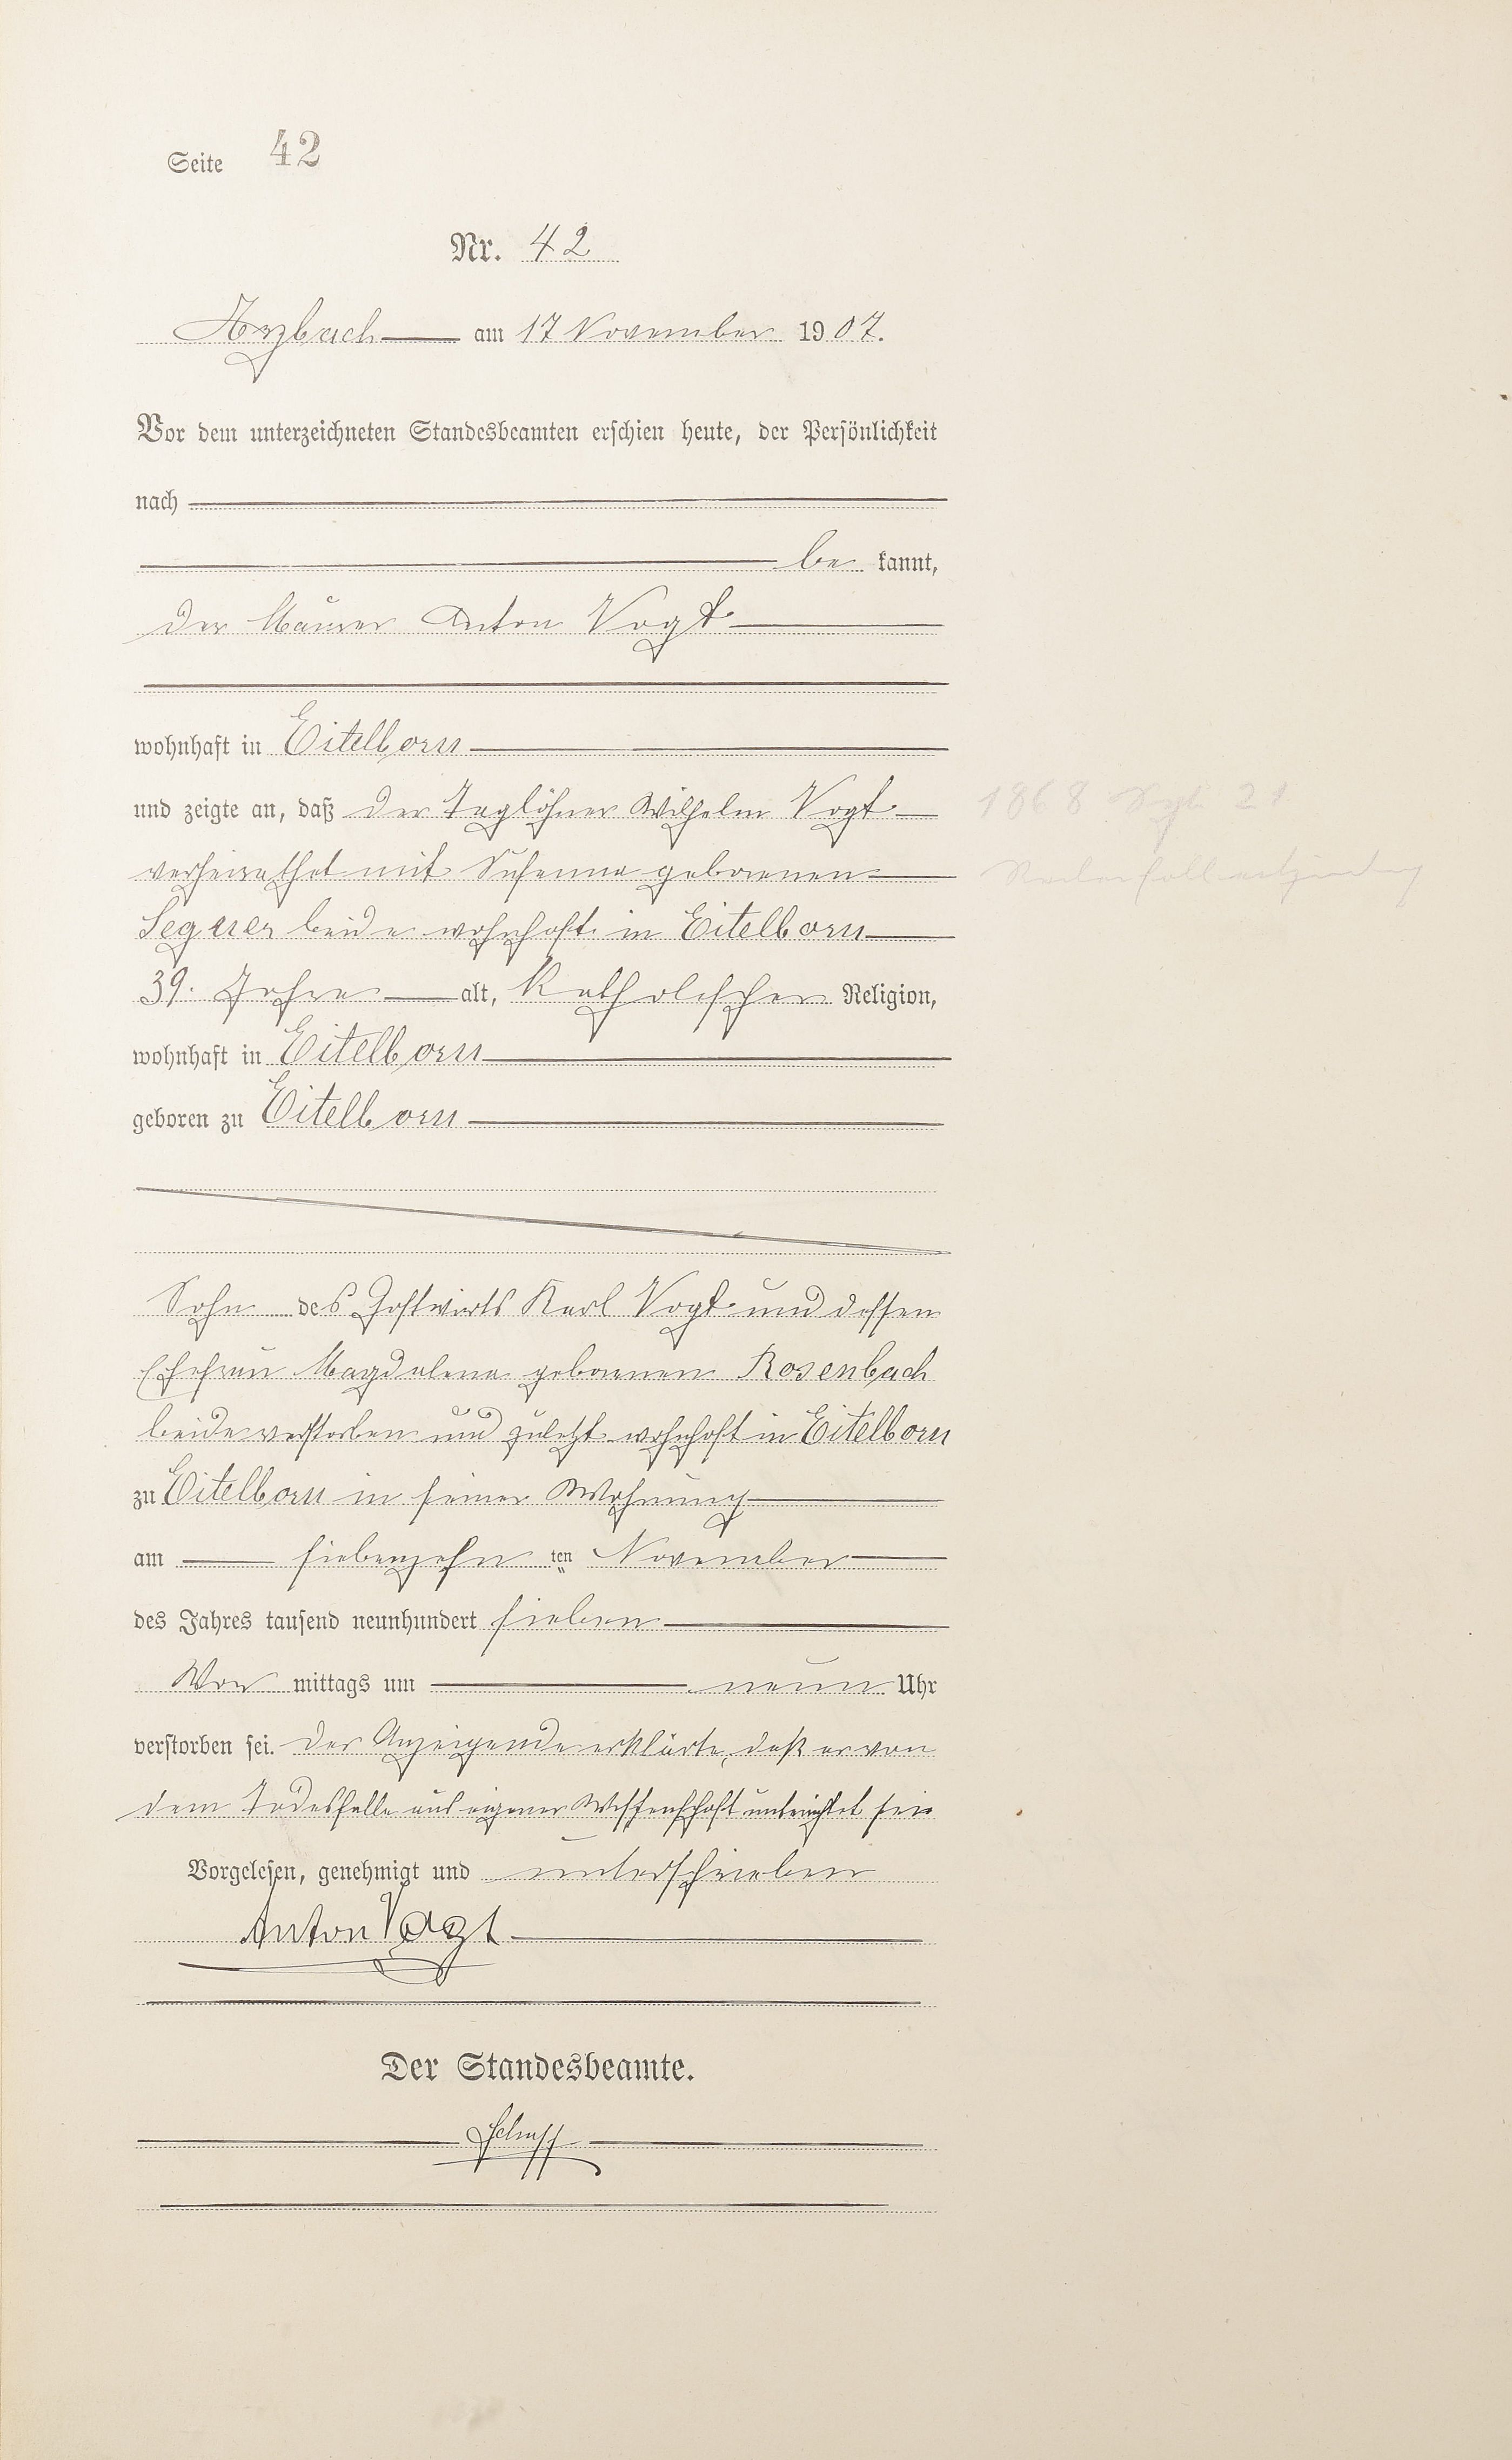 Seite 42
Nr. 42
Arzbach am 17 November 1907.
Vor dem unterzeichneten Standesbeamten erschien heute, der Persönlichkeit
nach
be kannt,
der Maurer Anton Vogt
wohnhaft in Eitelborn
und zeigte an, daß der Taglöhner Wilhelm Vogt
verheirathet mit Susanna geborenen
beide wohnhaft in Eitelborn
39. Jahre alt, Katholischer Religion,
wohnhaft in Eitelborn
geboren zu Eitelborn
Sohn des Gastwirts Karl Vogt und dessen
Ehefrau Magdalena geborenen Rosenbach
beide verstorben und zuletzt wohnhaft in Eitelborn
zu Eitelborn in seiner Wohnung
am siebenzehn ten November
des Jahres tausend neunhundert sieben
Vor mittags um neun Uhr
verstorben sei. Der Anzeigende erklärte, daß er von
dem Todesfalle aus eigener Wissenschaft unterrichtet sei
Vorgelesen, genehmigt und unterschrieben
Anton Vogt
Der Standesbeamte.
1868 21